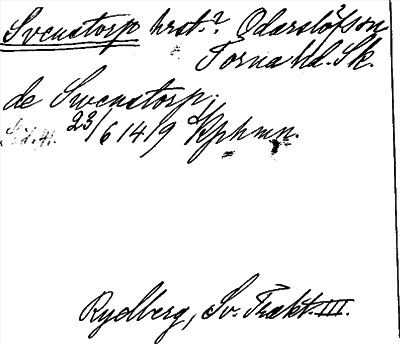 Svenstorp hrst.? Odarslöfs sn
Torna hd. Sk.
de Swenstorp;
23/6 1419 Kphmn.
Rydberg, Sv. Trakt. III.